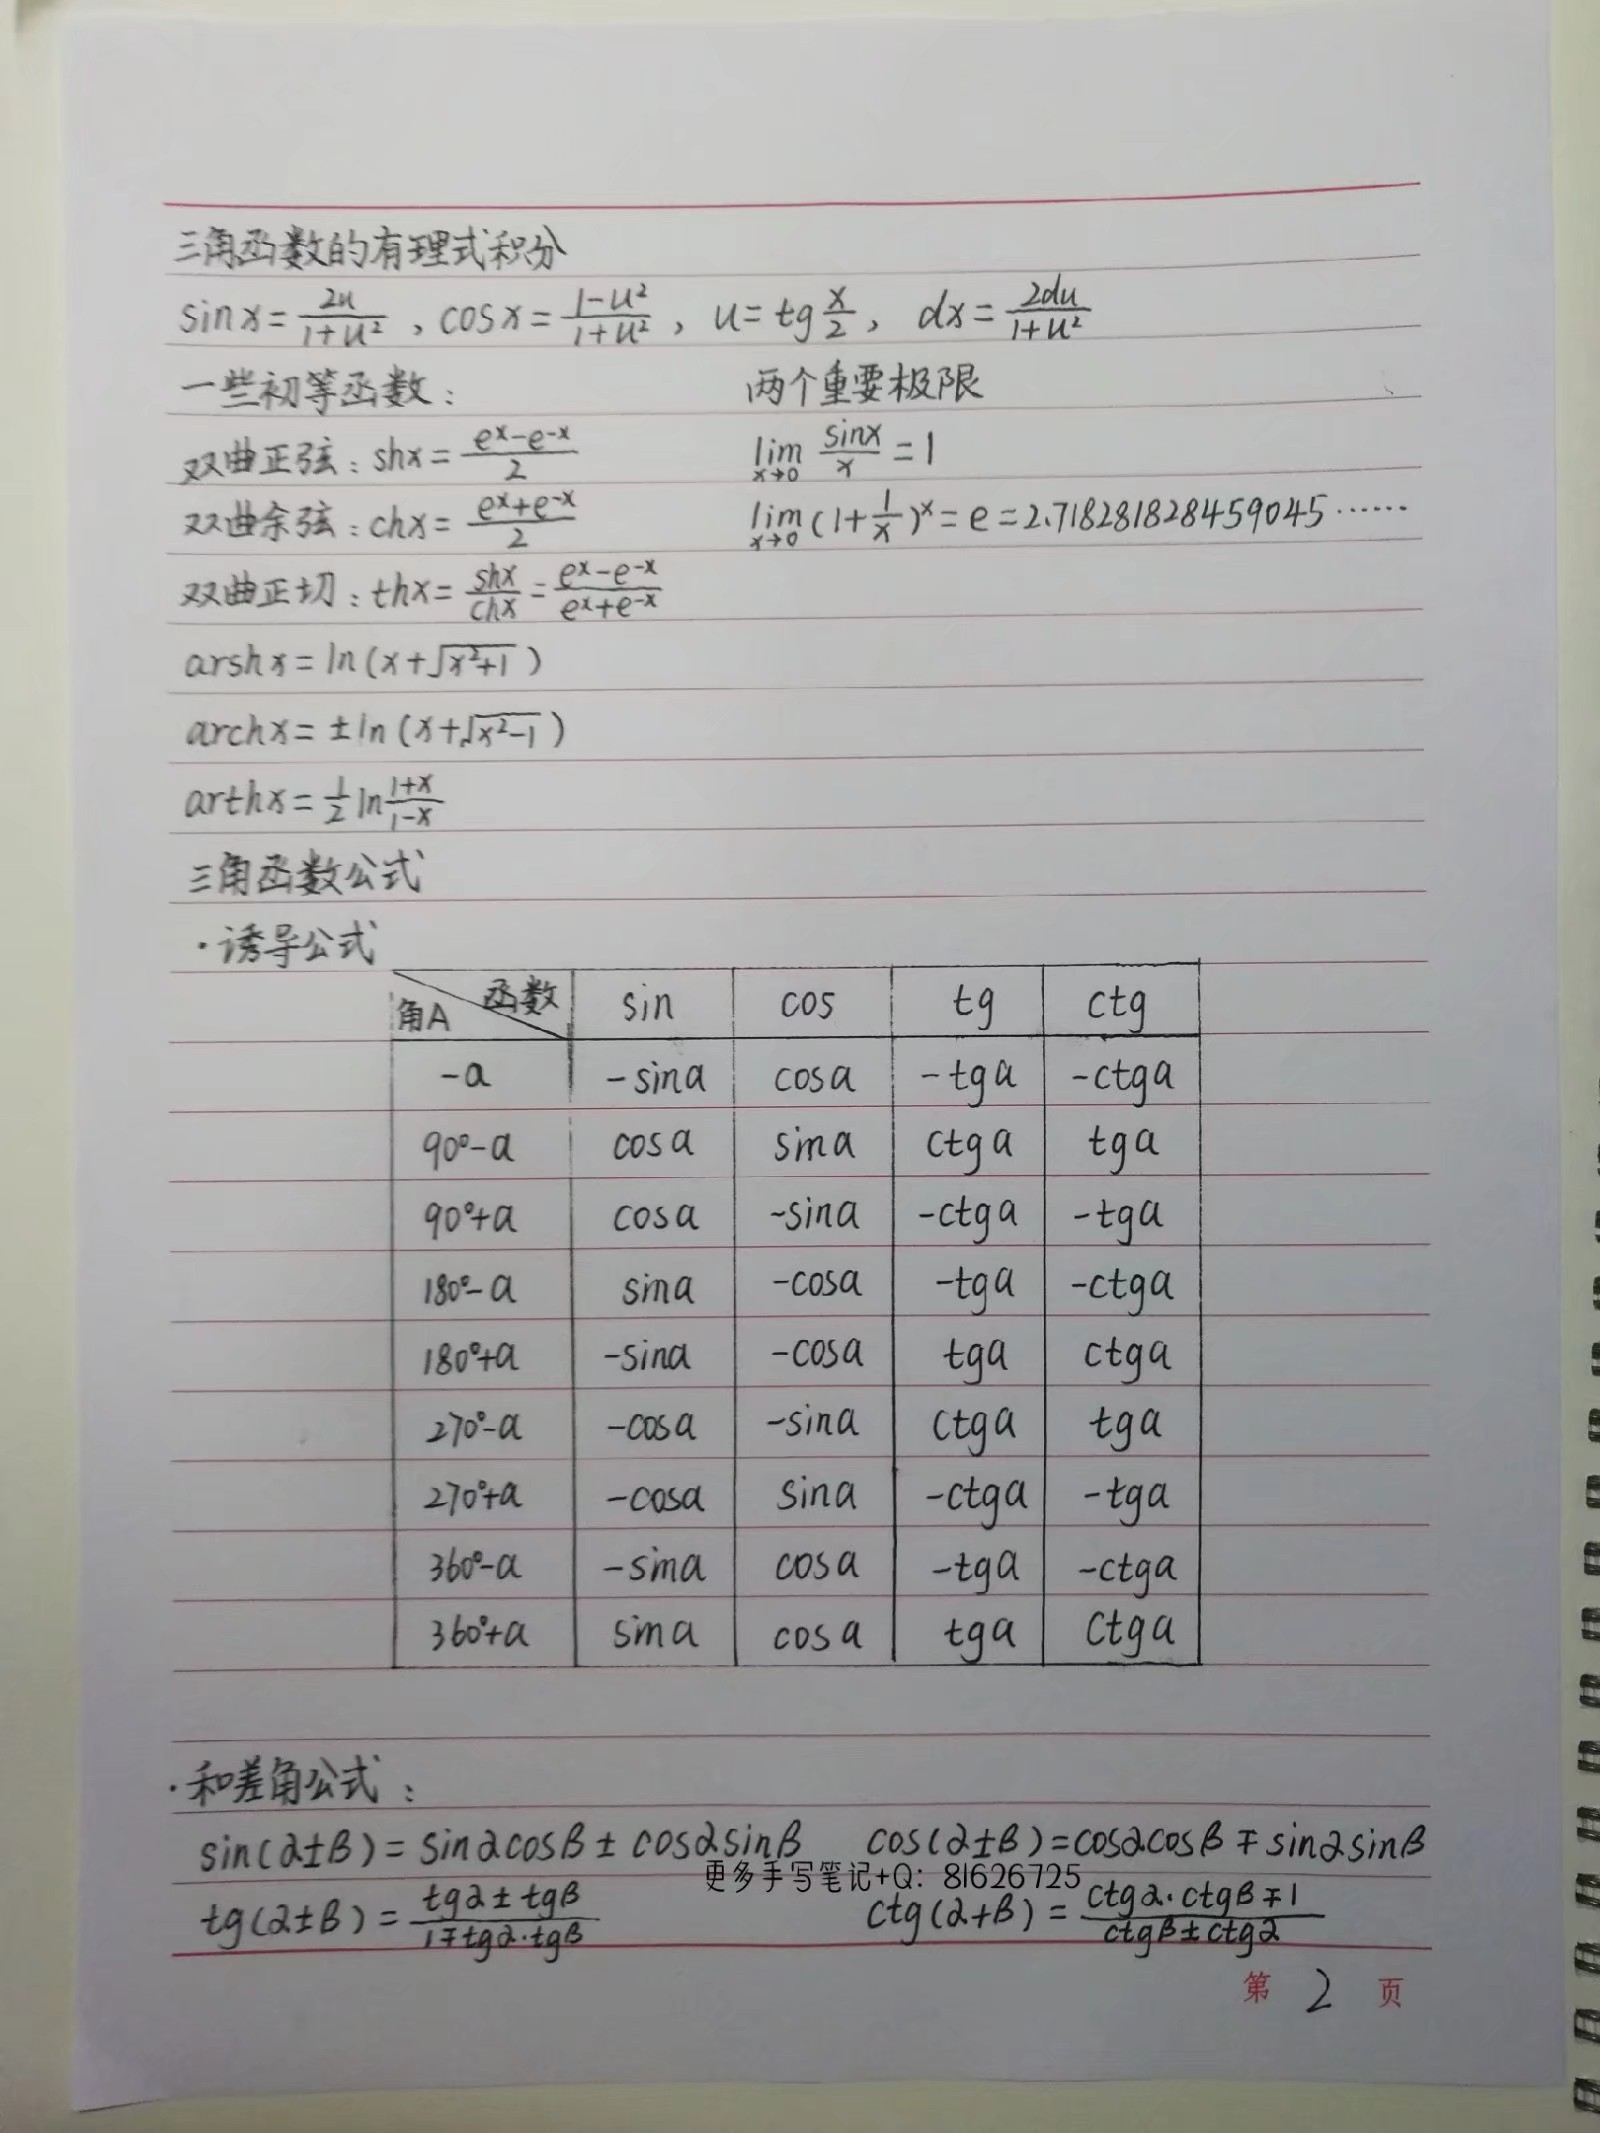 三角函数的有理式积分
sinx=2u/(1+u²), cosx=(1-u²)/(1+u²), u=tg x/2, dx=2du/(1+u²)
一些初等函数: 两个重要极限
双曲正弦: shx=(eˣ-e⁻ˣ)/2 lim x→0 sinx/x=1
双曲余弦: chx=(eˣ+e⁻ˣ)/2 lim x→0 (1+1/x)ˣ=e=2.718281828459045……
双曲正切: thx=shx/chx=(eˣ-e⁻ˣ)/(eˣ+e⁻ˣ)
arshx=ln(x+√(x²+1))
archx=±ln(x+√(x²-1))
arthx=1/2 ln (1+x)/(1-x)
三角函数公式
·诱导公式
角A 函数 sin cos tg ctg
-a -sina cosa -tga -ctga
90°-a cosa sina ctga tga
90°+a cosa -sina -ctga -tga
180°-a sina -cosa -tga -ctga
180°+a -sina -cosa tga ctga
270°-a -cosa -sina ctga tga
270°+a -cosa sina -ctga -tga
360°-a -sina cosa -tga -ctga
360°+a sina cosa tga ctga
·和差角公式:
sin(α±β)=sinαcosβ±cosαsinβ cos(α±β)=cosαcosβ∓sinαsinβ
更多手写笔记+Q: 81626725
tg(α±β)=(tgα±tgβ)/(1∓tgα·tgβ) ctg(α+β)=(ctgα·ctgβ∓1)/(ctgβ±ctgα)
第 2 页